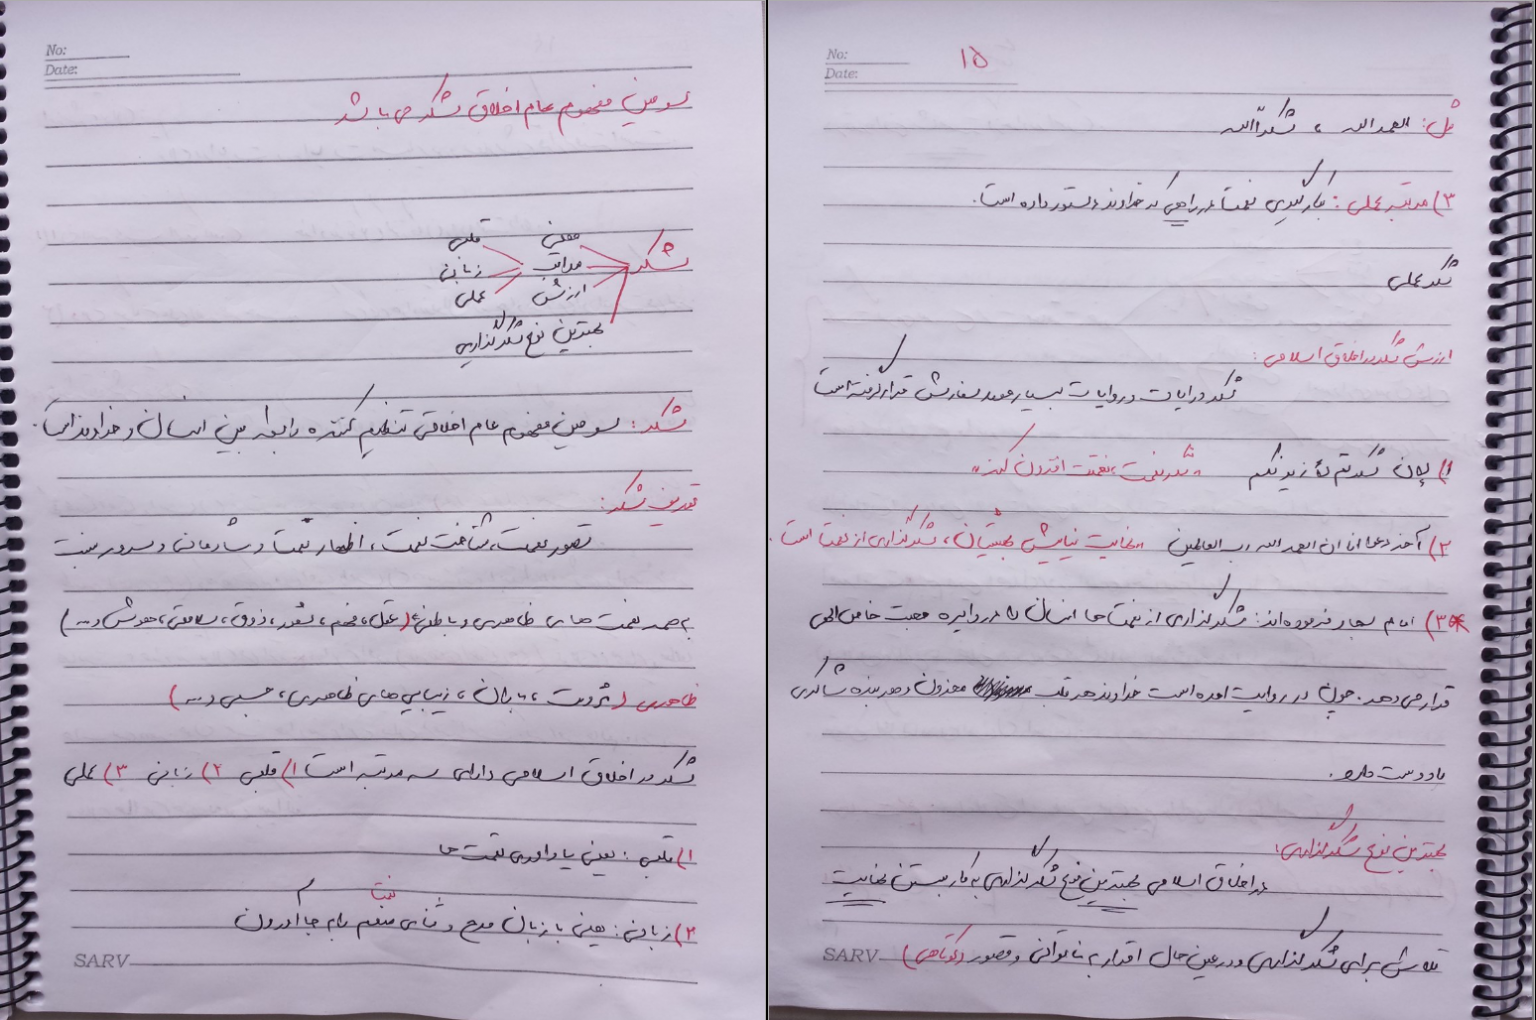 No:
Date:
سومین مفهوم عام اخلاق شکر می باشد
شکر
معنی
مراتب
ارزش
بهترین نوع شکرگذاری
قلبی
زبانی
عملی
شکر: سومین مفهوم عام اخلاقی تنظیم کننده رابطه بین انسان و خداوند است.
تعریف شکر:
تصور نعمت، شناخت نعمت، اظهار نعمت و شادمانی و سرور نسبت
به همه نعمت های ظاهری و باطنی (عقل، فهم، شعور، ذوق، سلامتی، هوش و ...)
ظاهری (ثروت، باران، زیبایی های ظاهری، جسمی و ...)
شکر در اخلاق اسلامی دارای سه مرتبه است ۱) قلبی ۲) زبانی ۳) عملی
۱) قلبی: یعنی یادآوری نعمت ها
نعمت
۲) زبانی: یعنی با زبان مدح و ثنای منعم را به جا آوردن
SARV
No:
Date:
۱۵
مثل: الحمدالله، شکراًالله
۳) مرتبه عملی: بکارگیری نعمت در راهی که خداوند دستور داده است.
شکر عملی
ارزش شکر در اخلاق اسلامی:
شکر در ایات و روایات بسیار مورد سفارش قرار گرفته است
۱) لان شکرتم لازیدنکم «شکر نعمت، نعمتت افزون کند»
۲) آخر دعوانا ان الحمدالله رب العالمین «نهایت نیایش بهشتیان، شکرگذاری از نعمت است
۳) امام سجاد فرموده اند: شکرگذاری از نعمت ها انسان را در دایره محبت خاص الهی
قرار می دهد. چون در روایت امده است خداوند هر قلب محزون و هر بنده شاکری
را دوست دارد.
بهترین نوع شکرگذاری:
در اخلاق اسلامی بهترین نوع شکرگذاری به کار بستن نهایت
تلاش برای شکرگذاری و در عین حال اقرار به ناتوانی و قصور (کوتاهی)
SARV